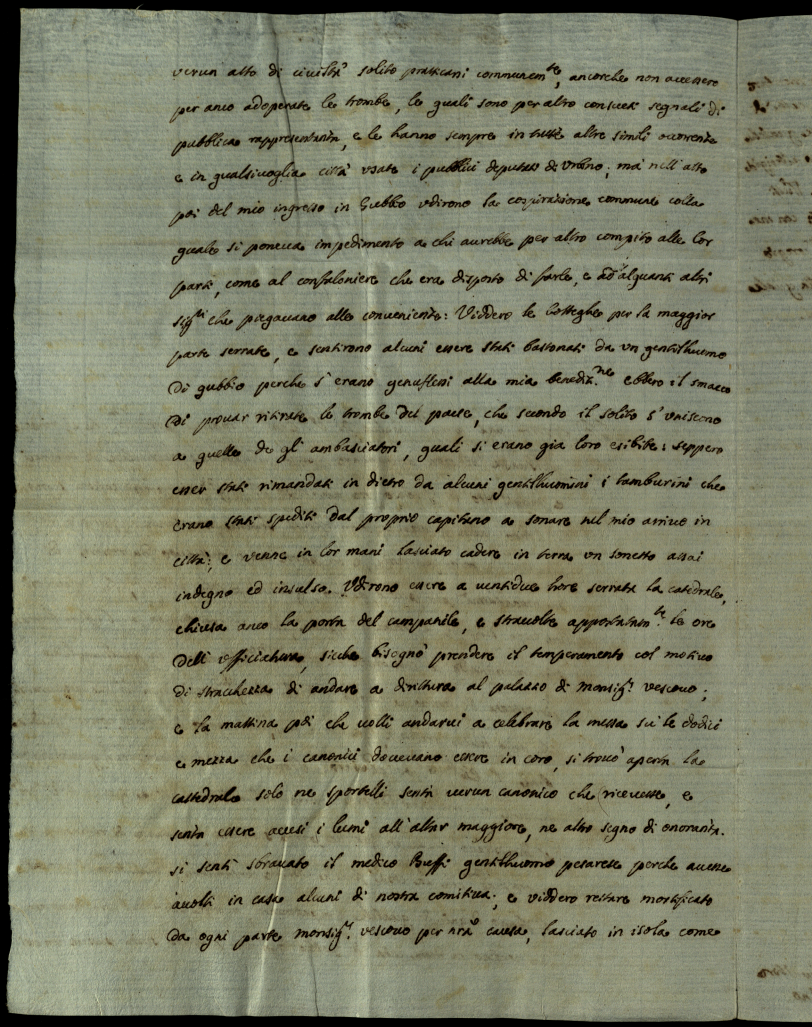 verun atto di civiltà solito praticarsi communem.te, ancorche non avessero
per anco adoperate le trombe, le quali sono per altro consueti segnali di
pubblica rappresentanza, e le hanno sempre in tutte altre simili occorrenze
e in qualsivoglia città usate i pubblici deputati di Urbino; mà nell'atto
poi del mio ingresso in Gubbio udirono la cospirazione commune colla
quale si poneva impedimento a chi aurebbe per altro compito alle lor
parti, come al confaloniere che era disposto di farle, e ad alquanti altri
sig.ri che piegavano alle conveniente: Viddero le botteghe per la maggior
parte serrate, e sentirono alcuni essere stati bastonati da un gentilhuomo
di gubbio perche s'erano genuflessi alla mia benediz.ne ebbero il smacco
di provar ritirate le trombe del paese, che secondo il solito s'uniscono
a quelle de gli ambasciatori, quali si erano già loro esibite: seppero
esser stati rimandati in dietro da alcuni gentilhuomini i tamburini che
erano stati spediti dal proprio capitano a sonare nel mio arrivo in
città; e venne in lor mani lasciato cadere in terra un sonetto assai
indegno ed insulso. Udirono essere a ventidue hore serrata la catedrale,
chiusa anco la porta del campanile, e stravolte appostatam.te le ore
dell'officiatura, sicche bisognò prendere il temperamento col motivo
di stracchezza di andare a dirittura al palazzo di monsig.r vescovo;
e la mattina poi che volli andarvi a celebrare la messa su le dodici
e mezza che i canonici dovevano essere in coro, si trovò aperta la
cattedrale solo ne sportelli senza verun canonico che ricevesse, e
senza essere accesi i lumi all'altar maggiore, ne altro segno di onoranza.
si sentì sbravato il medico Buffi gentilhuomo pesarese perche avesse
avolti in casa alcuni di nostra comitiva; e viddero restare mortificato
da ogni parte monsig.r vescovo per nra causa, lasciato in isola come